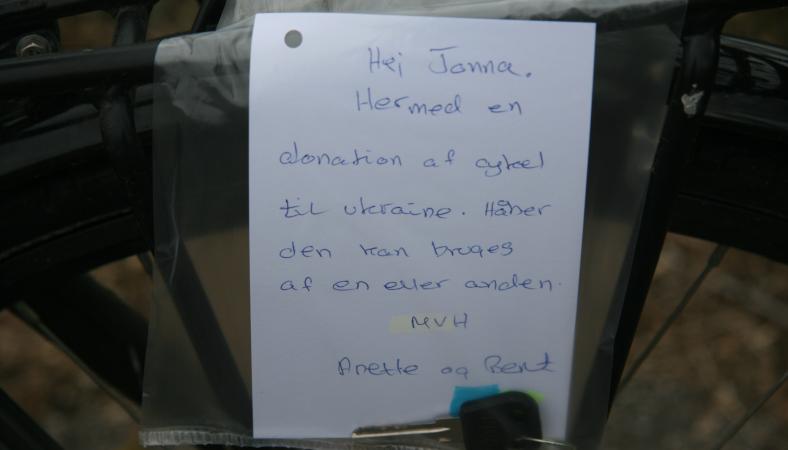 Hej Jonna.
Hermed en
donation af cykel
til ukraine. Håber
den kan bruges
af en eller anden.
MVH
Anette og Bent